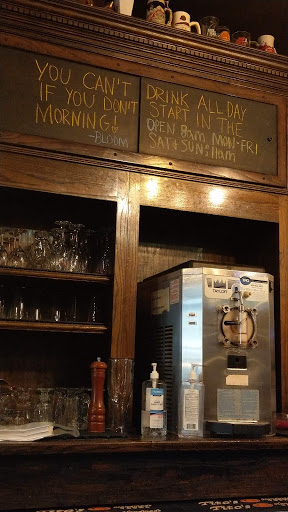 YOU CAN'T
IF YOU DON'T
MORNING!
-BLOOM
DRINK ALL DAY
START IN THE
OPEN 8am MON-FRI
SAT & SUN: 11am
TAYLOR